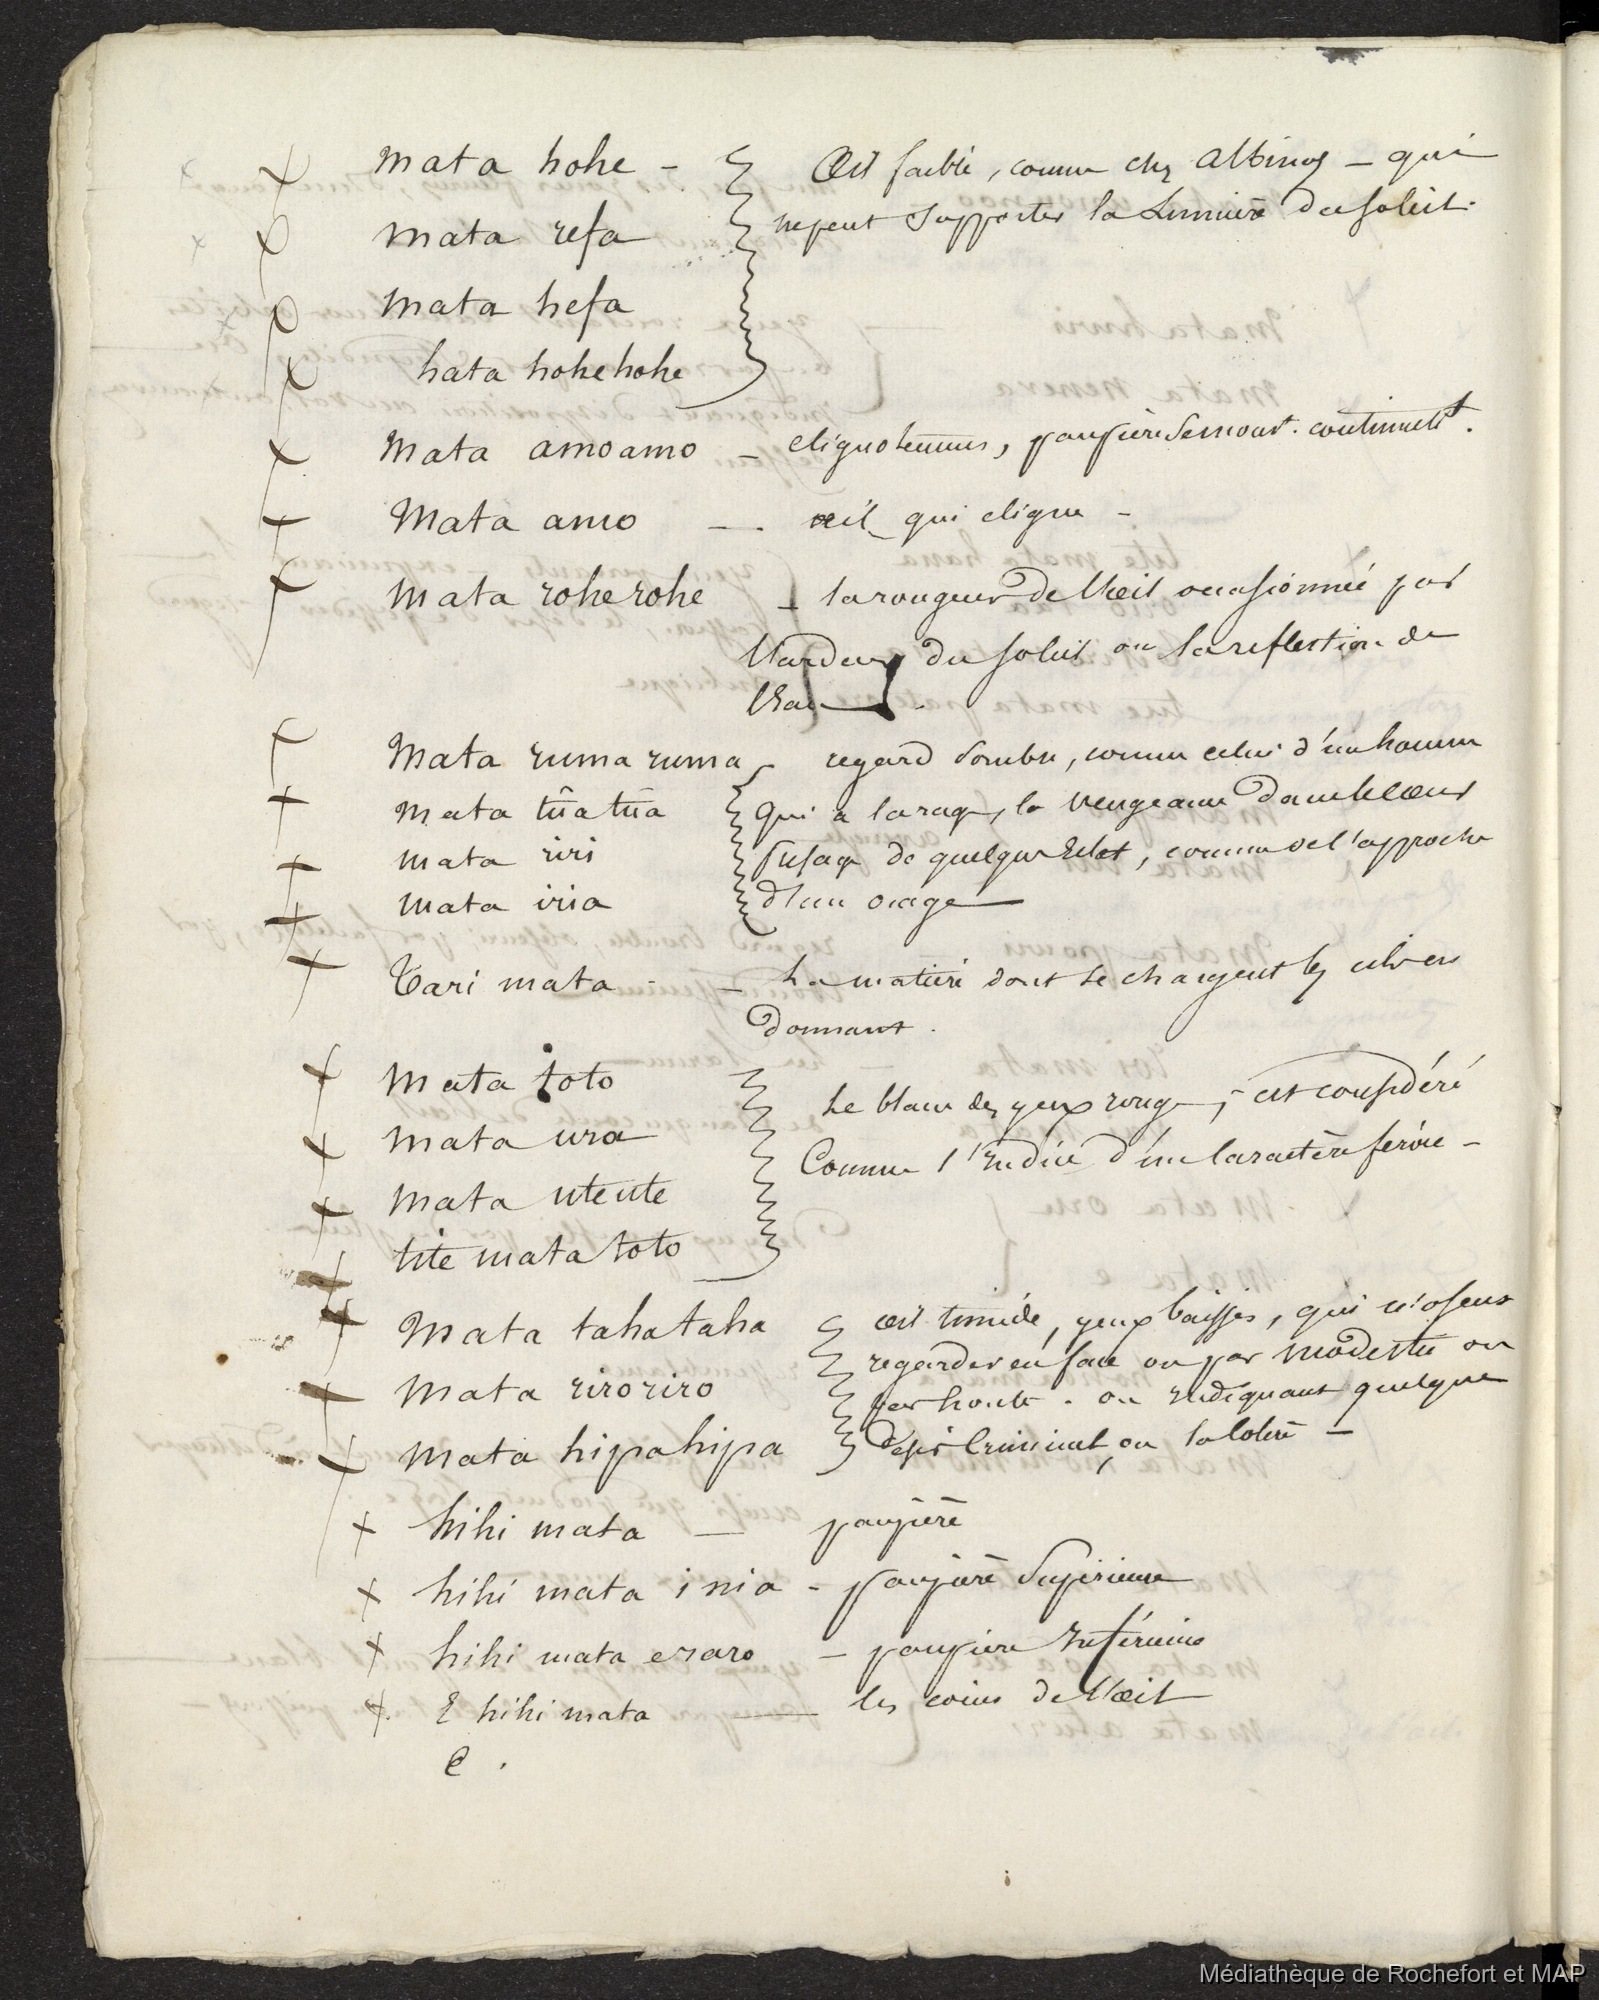 mata hohe - Œil faible, comme chez albinos - qui
mata refa ne peut supporter la Lumière du soleil.
mata hefa
hata hohehohe
Mata amoamo - clignotemens, paupière se mouvt. continuellt.
Mata amo - . œil qui cligne -
Mata roherohe - la rougeur de l'œil occasionnée par
l'ardeur du soleil ou la reflection de
l'Eau .
Mata rumaruma regard sombre, comme celui d'un homme
mata tũatũa qui a la rage, la vengeance dans le cœur
mata riri présage de quelque Eclat, comme de l'approche
mata iria d'un orage
Tari mata - - La matière dont se chargent les cils en
dormant .
Mata toto Le blanc des yeux rouge, est considéré
Mata ura Comme l'indice d'un Caractère féroce -
Mata uteute
tite mata toto
Mata tahataha œil timide, yeux baissés, qui n'osent
Mata riroriro regarder en face ou par modestie ou
par honte. ou indiquant quelque
Mata hipahipa désir Criminel, ou la colère -
hihi mata - paupière
hihi mata i nia - paupière Supérieure
hihi mata eraro - paupière Inférieure
E hihi mata - les coins de l'œil
e .
Médiathèque de Rochefort et MAP